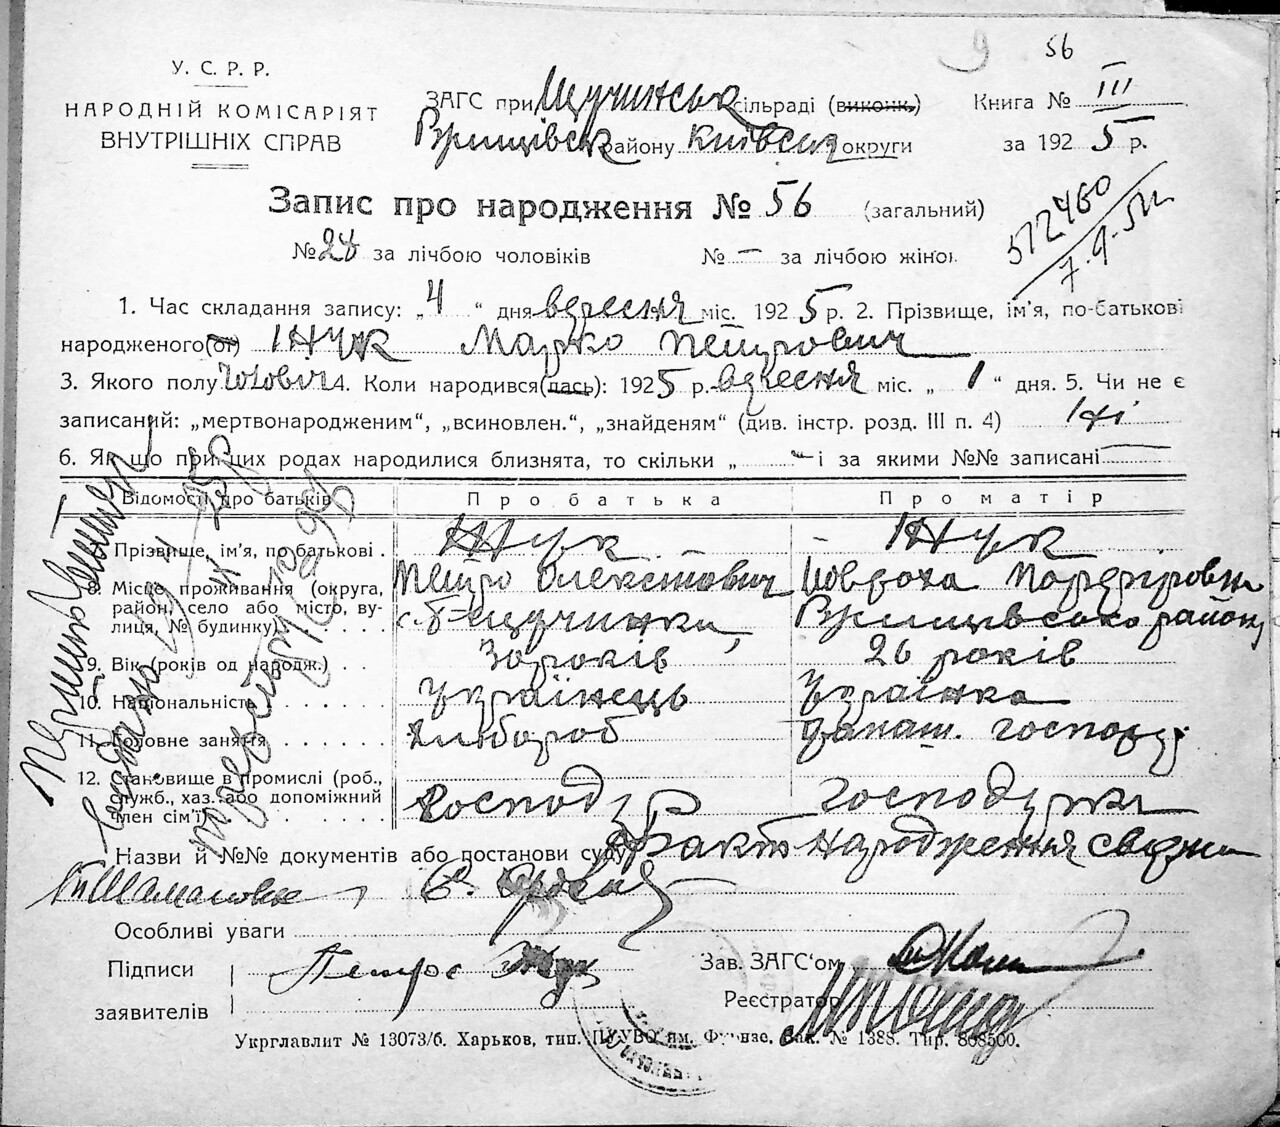 9 56
У. С. Р. Р.
НАРОДНІЙ КОМІСАРІЯТ
ВНУТРІШНІХ СПРАВ
ЗАГС при Щучинськ сільраді (виконк.) Книга № III
району Київськ округи за 1925 р.
Запис про народження № 56 (загальний)
№ 28 за лічбою чоловіків № — за лічбою жінок
572460
7.9.51
1. Час складання запису: „4“ дня вересня міс. 1925 р. 2. Прізвище, ім'я, по-батькові
народженого(ої) Жук Марко Петрович
3. Якого полу чоловіч 4. Коли народився(лась): 1925 р. вересня міс. „1“ дня. 5. Чи не є
записаний: „мертвонародженим“, „всиновлен.“, „знайденям“ (див. інстр. розд. III п. 4) Ні
6. Як що при цих родах народилися близнята, то скільки „ — і за якими №№ записані —
Відомості про батьків Про батька Про матір
Прізвище, ім'я, по батькові . Жук Жук
8. Місце проживання (округа, Петро Олексійович Йовдоха
район, село або місто, ву-
лиця, № будинку) району
9. Вік (років од народж.) . . 30 років 26 років
10. Національність Українець Українка
11. Головне заняття Хлібороб домаш. господ
12. Становище в промислі (роб.,
служб., хаз. або допоміжний господ господ
член сім'ї)
Назви й №№ документів або постанови суду Факт народження
Особливі уваги
Підписи Петро Жук Зав. ЗАГС'ом
заявителів Реєстратор
Укрглавлит № 13073/6. Харьков, тип. ЦУУВО им. Фрунзе. Зак. № 1388. Тир. 808500.